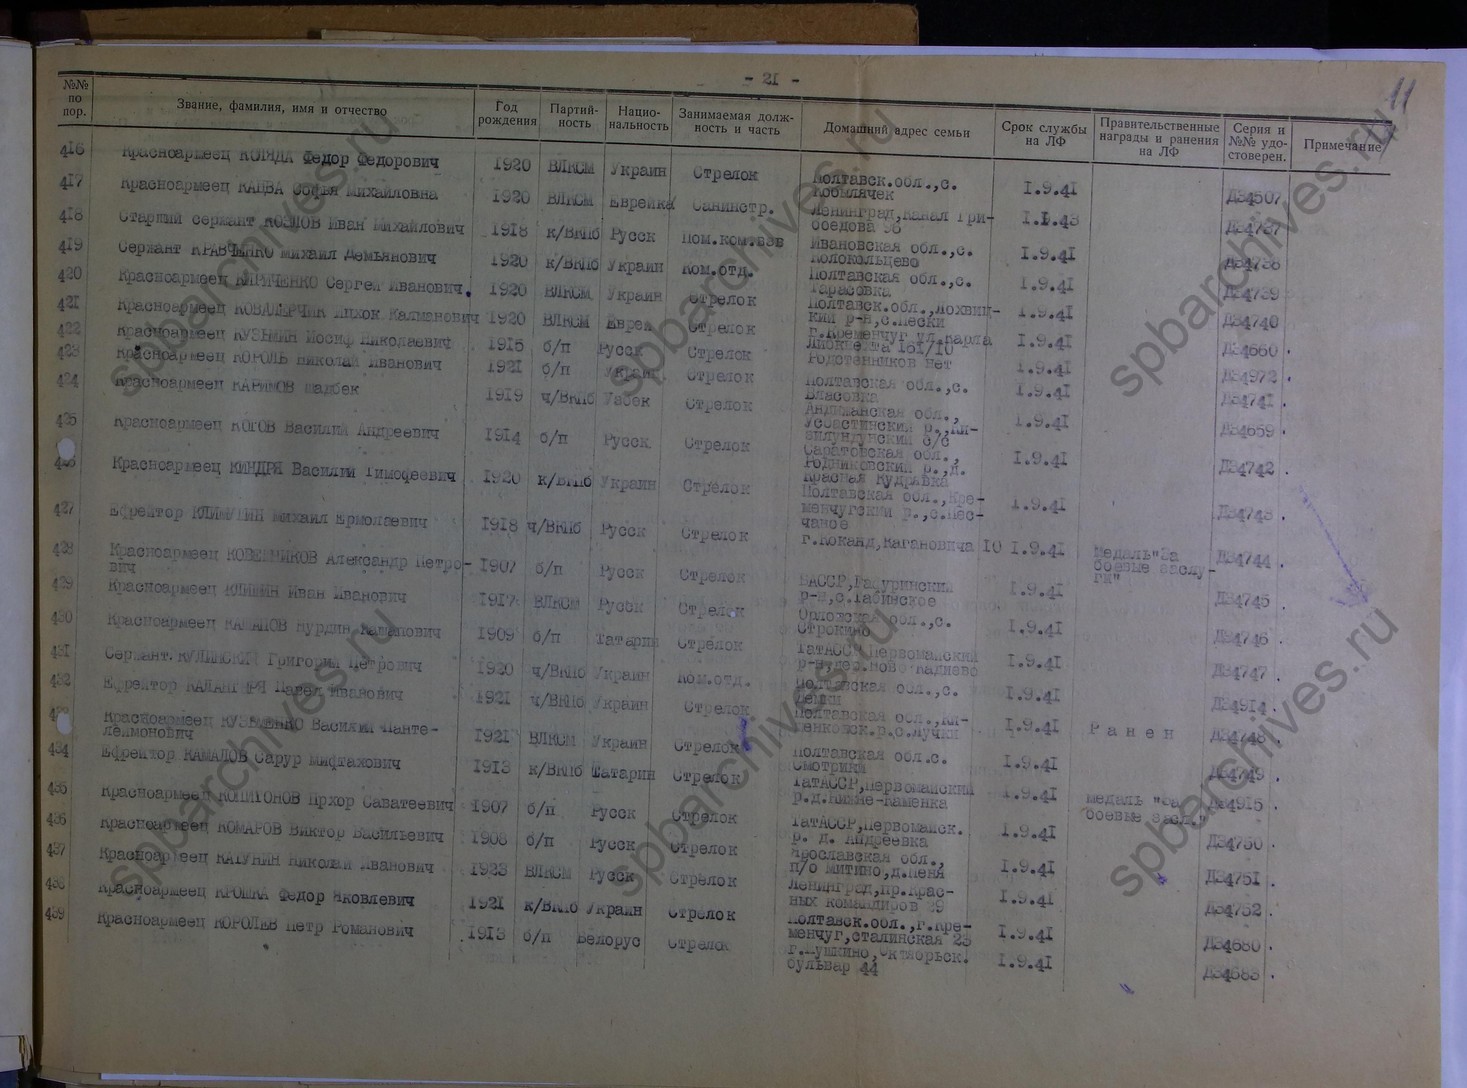 - 21 -
11
№№ по пор. Звание, фамилия, имя и отчество Год рождения Партий-ность Нацио-нальность Занимаемая долж-ность и часть Домашний адрес семьи Срок службы на ЛФ Правительственные награды и ранения на ЛФ Серия и №№ удо-стоверен. Примечание
416 Красноармеец КОЛЯДА Федор Федорович 1920 ВЛКСМ Украин Стрелок Полтавск.обл.,с. Кобылячек I.9.41 ДЗ4507
417 Красноармеец КАЦВА Софья Михайловна 1920 ВЛКСМ Еврейка Санинстр. Ленинград,канал Гри-боедова 96 I.I.43 ДЗ4737
418 Старший сержант КОЗЛОВ Иван Михайлович 1918 к/ВКПб Русск Пом.ком.взв Ивановская обл.,с. Колокольцево I.9.41 ДЗ4738
419 Сержант КРАВЧЕНКО Михаил Демьянович 1920 к/ВКПб Украин Ком.отд. Полтавская обл.,с. Тарасовка I.9.41 ДЗ4739
420 Красноармеец КИРИЧЕНКО Сергей Иванович. 1920 ВЛКСМ Украин Стрелок Полтавск.обл.,Лохвиц-кий р-н,с.Пески I.9.41 ДЗ4740
421 Красноармеец Калманович 1920 ВЛКСМ Еврей Стрелок г.Кременчуг ул.Карла Либкнехта 161/10 I.9.41 ДЗ4660
422 Красноармеец КУЗЬМИН Иосиф Николаевич 1915 б/п Русск Стрелок Родственников нет I.9.41 ДЗ4972
423 Красноармеец КОРОЛЬ Николай Иванович 1921 б/п Украин Стрелок Полтавская обл.,с. Власовка I.9.41 ДЗ4741
424 Красноармеец КАРИМОВ 1919 ч/ВКПб Узбек Стрелок Андижанская обл., с/с I.9.41 ДЗ4659
425 Красноармеец КОГОВ Василий Андреевич 1914 б/п Русск Стрелок Саратовская обл., Родниковский р.,д. Красная Кудрявка I.9.41 ДЗ4742
426 Красноармеец КИНДРЯ Василий Тимофеевич 1920 к/ВКПб Украин Стрелок Полтавская обл.,Кре-менчугский р.,с.Пес-чаное I.9.41 ДЗ4743
427 Ефрейтор КЛИМУШИН Михаил Ермолаевич 1918 ч/ВКПб Русск Стрелок г.Коканд,Кагановича 10 I.9.41 Медаль"За боевые заслу-ги" ДЗ4744
428 Красноармеец КОЖЕВНИКОВ Александр Петро-вич 1907 б/п Русск Стрелок БАССР,Гафуринский р-н,с.Табинское I.9.41 ДЗ4745
429 Красноармеец КЛИШИН Иван Иванович 1917 ВЛКСМ Русск Стрелок Орловская обл.,с. Строкино I.9.41 ДЗ4746
430 Красноармеец КАМАЛОВ Нурдин Камалович 1909 б/п Татарин Стрелок ТатАССР,Первомайский р-н,дер.Ново-Кадиево I.9.41 ДЗ4747
431 Сержант.КУЛИНСКИЙ Григорий Петрович 1920 ч/ВКПб Украин Ком.отд. Полтавская обл.,с. Демки I.9.41 ДЗ4914
432 Ефрейтор Павел Иванович 1921 ч/ВКПб Украин Стрелок Полтавская обл.,Ки-шенковск.р.с.Лучки I.9.41 Ранен ДЗ4748
433 Красноармеец КУЗЬМЕНКО Василий Панте-леймонович 1921 ВЛКСМ Украин Стрелок Полтавская обл.с. Смотрики I.9.41 ДЗ4749
434 Ефрейтор КАМАЛОВ Сарур Мифтахович 1913 к/ВКПб Татарин Стрелок ТатАССР,Первомайский р.д.Нижне-Каменка I.9.41 Медаль "За боевые засл." ДЗ4915
435 Красноармеец КОПИТОНОВ Прхор Саватеевич 1907 б/п Русск Стрелок ТатАССР,Первомайск. р. д. Андреевка I.9.41 ДЗ4750
436 Красноармеец КОМАРОВ Виктор Васильевич 1908 б/п Русск Стрелок Ярославская обл., п/о Митино,д.Меня I.9.41 ДЗ4751
437 Красноармеец КАТУНИН Николай Иванович 1923 ВЛКСМ Русск Стрелок Ленинград,пр.Крас-ных командиров 29 I.9.41 ДЗ4752
438 Красноармеец КРОШКА Федор Яковлевич 1921 к/ВКПб Украин Стрелок Полтавск.обл.,г.Кре-менчуг,Сталинская 23 I.9.41 ДЗ4680
439 Красноармеец КОРОЛЕВ Петр Романович 1913 б/п Белорус Стрелок г.Пушкино,Октябрьск. бульвар 44 I.9.41 ДЗ4683
spbarchives.ru
spbarchives.ru
spbarchives.ru
spbarchives.ru
spbarchives.ru
spbarchives.ru